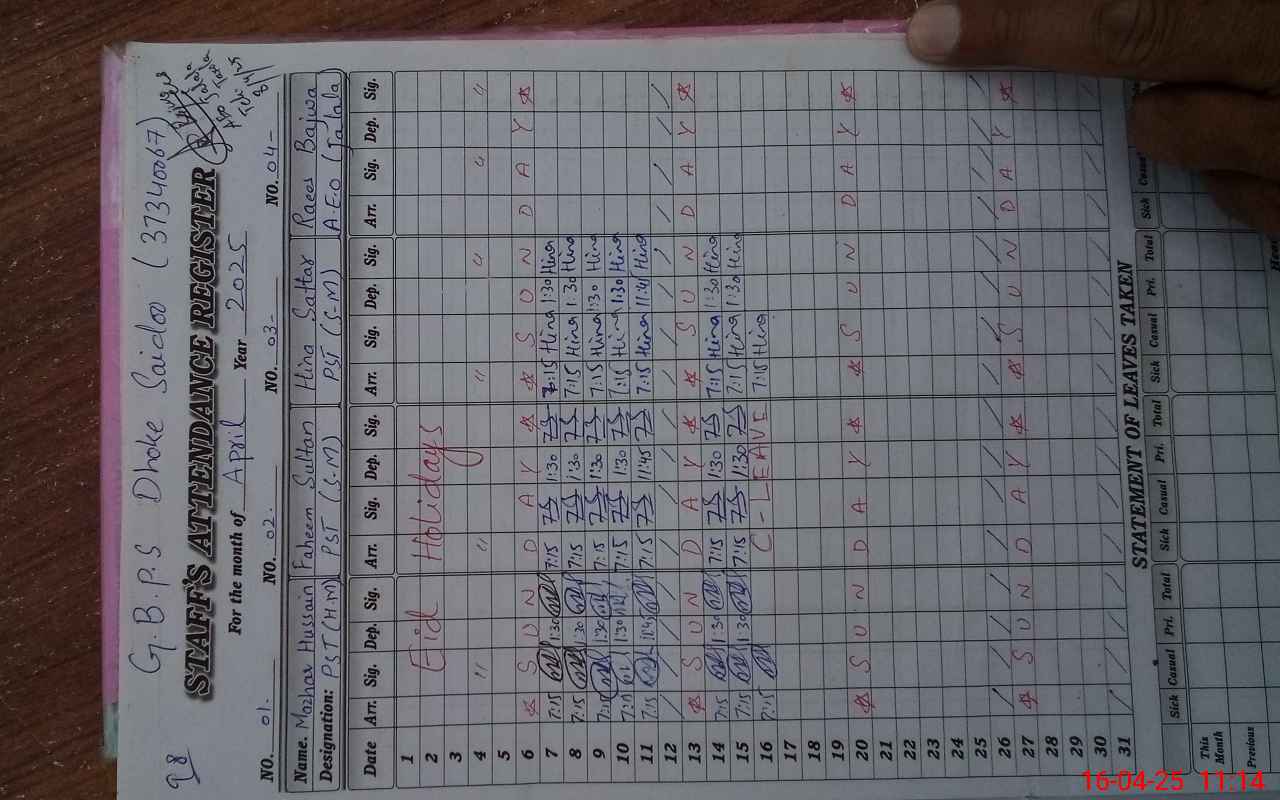 98
G.B.P.S Dhoke Saidoo (37340067)
STAFF'S ATTENDANCE REGISTER
For the month of April Year 2025
NO. 01. NO. 02. NO. 03- NO. 04-
Name. Mazhar Hussain Faheem Sultan Hina Sattar Raees Bajwa
Designation: PST (H.M) PST (S.M) PST (S.M) A.E.O (Jalala)
Date Arr. Sig. Dep. Sig. Arr. Sig. Dep. Sig. Arr. Sig. Dep. Sig. Arr. Sig. Dep. Sig.
1
2 Eid Holidays
3
4 " " " " " "
5
6 * S U N D A Y * * S U N D A Y *
7 7:15 1:30 7:15 1:30 7:15 Hina 1:30 Hina
8 7:15 1:30 7:15 1:30 7:15 Hina 1:30 Hina
9 7:15 1:30 7:15 1:30 7:15 Hina 1:30 Hina
10 7:15 1:30 7:15 1:30 7:15 Hina 1:30 Hina
11 7:15 11:45 7:15 11:45 7:15 Hina 11:45 Hina
12
13 * S U N D A Y * * S U N D A Y *
14 7:15 1:30 7:15 1:30 7:15 Hina 1:30 Hina
15 7:15 1:30 7:15 1:30 7:15 Hina 1:30 Hina
16 7:15 C-LEAVE 7:15 Hina
17
18
19
20 * S U N D A Y * * S U N D A Y *
21
22
23
24
25
26
27 * S U N D A Y * * S U N D A Y *
28
29
30
31
STATEMENT OF LEAVES TAKEN
Sick Casual Pri. Total Sick Casual Pri. Total Sick Casual Pri. Total Sick Casual
This Month
Previous
16-04-25 11:14